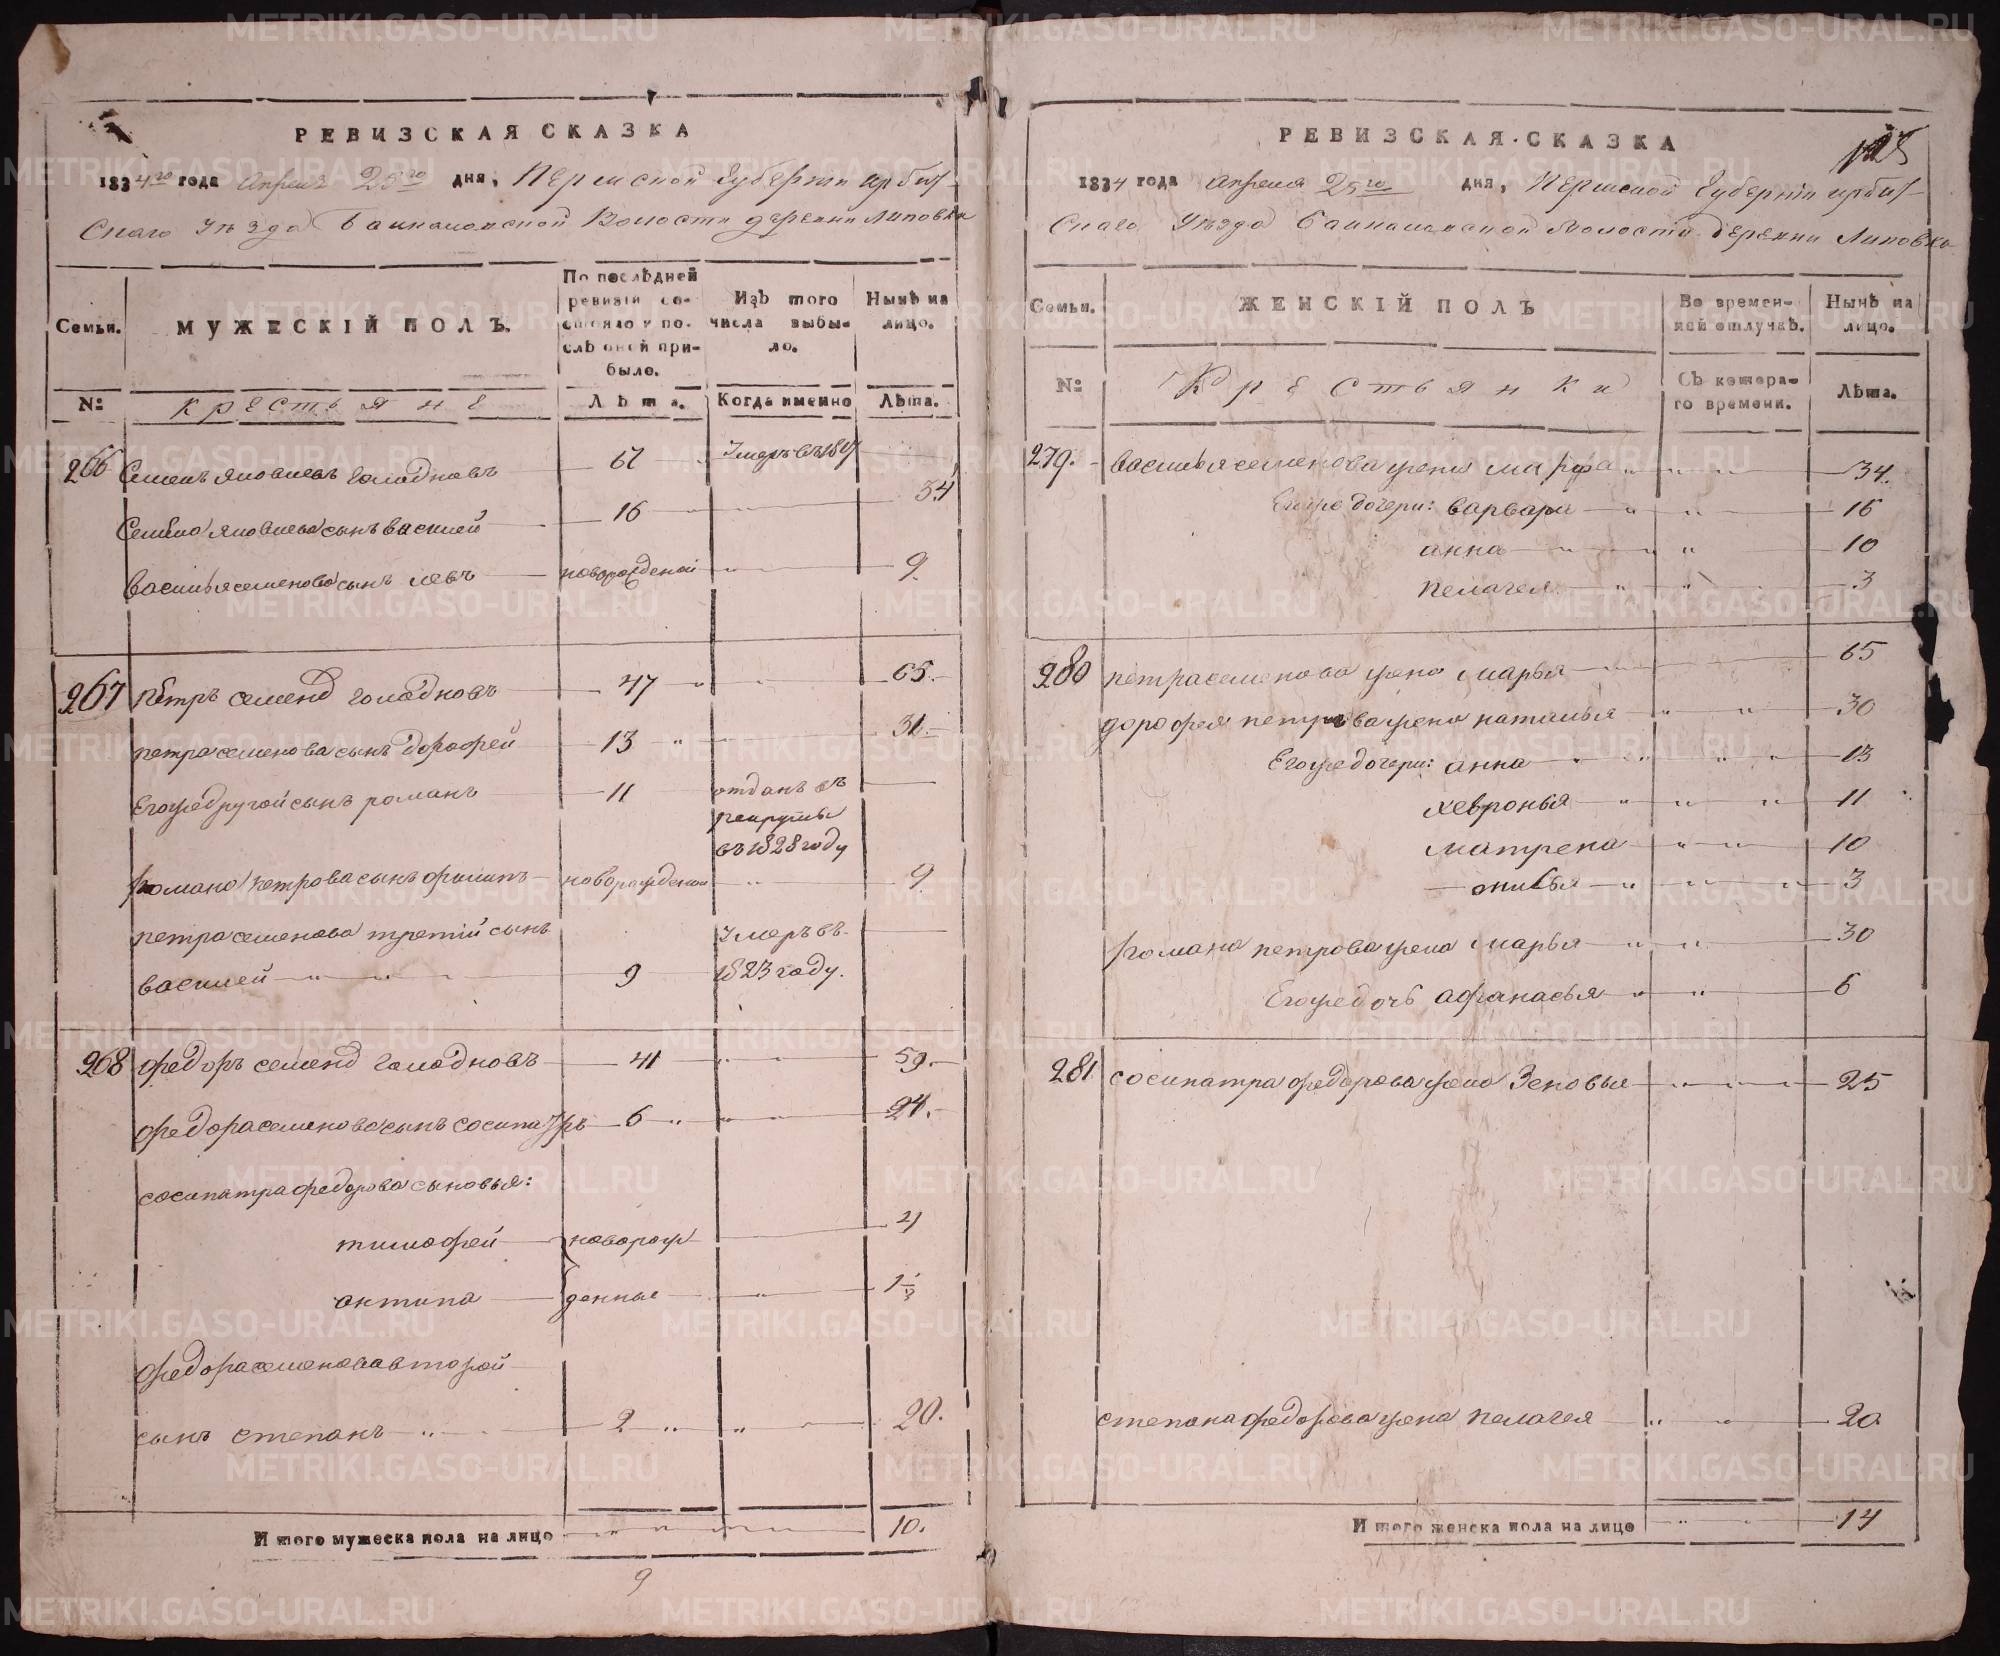 РЕВИЗСКАЯ СКАЗКА
1834го года Апреля 25го дня, Пермской губернiи ирбит-
скаго уѣзда Баикаловской Волости деревни Липовки
Семьи.
МУЖЕСКIЙ ПОЛЪ.
По послѣдней ревизiи состояло и послѣ оной прибыло.
Изъ того числа выбыло.
Нынѣ на лицо.
№
крестьяне
Лѣта.
Когда именно
Лѣта.
266 Семенъ яковлевъ голодновъ 67 Умеръ въ
Семена яковлева сынъ василей 16 34
Василья семенова сынъ левъ новорожденой 9.
267 петръ семенов голодновъ 47 65.
петра семенова сынъ дорофей 13 31.
Егоже другой сынъ романъ 11 отданъ въ
рекруты
въ 1828 году
романа петрова сынъ филипъ новорожденои 9
петра семенова третiй сынъ Умеръ въ
василей 9 1823 году.
268 федоръ семенов голодновъ 41 59.
федора семенова сынъ сосипатръ 6 24.
сосипатра федорова сыновья:
тимофей новорож 4
антипа денные 1 1/3
федора семенова второй
сынъ степанъ 2 20.
Итого мужеска пола на лицо 10.
9
РЕВИЗСКАЯ СКАЗКА
1834 года Апреля 25го дня, Пермской губернiи ирбит-
скаго уѣзда Баикаловской волости деревни Липовки
Семьи.
ЖЕНСКIЙ ПОЛЪ
Во временной отлучкѣ.
Нынѣ на лицо.
№
Крестьянки
Съ котораго времени.
Лѣта.
279. василья семенова жена марфа 34.
Егоже дочери: варвара 16
анна 10
пелагея 3
280 петра семенова жена марья 65
дорофея петрова жена наталья 30
Егоже дочери: анна 13
хевронья 11
матрена 10
3
романа петрова жена марья 30
Егоже дочь афанасья 6
281 сосипатра федорова жена Зеновья 25
степана федорова жена пелагея 20
Итого женска пола на лицо 14
METRIKI.GASO-URAL.RU